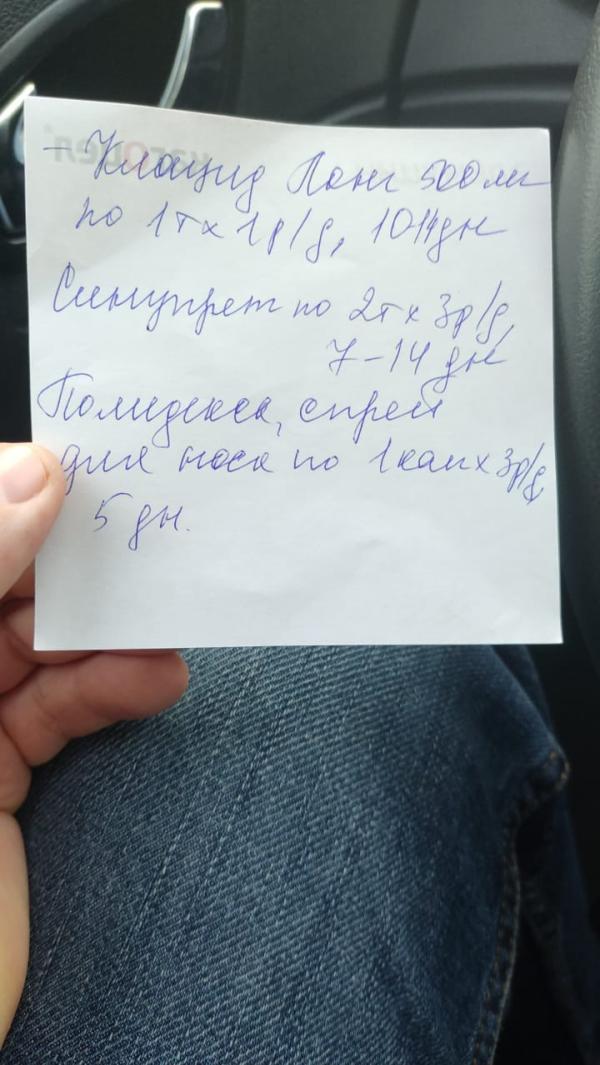 - Клацид Лонг 500 мг
по 1т х 1 р/д, 10 дн
Синупрет по 2т х 3р/д,
7-14 дн
Полидекса, спрей
для носа по 1 кап х 3р/д,
5 дн.